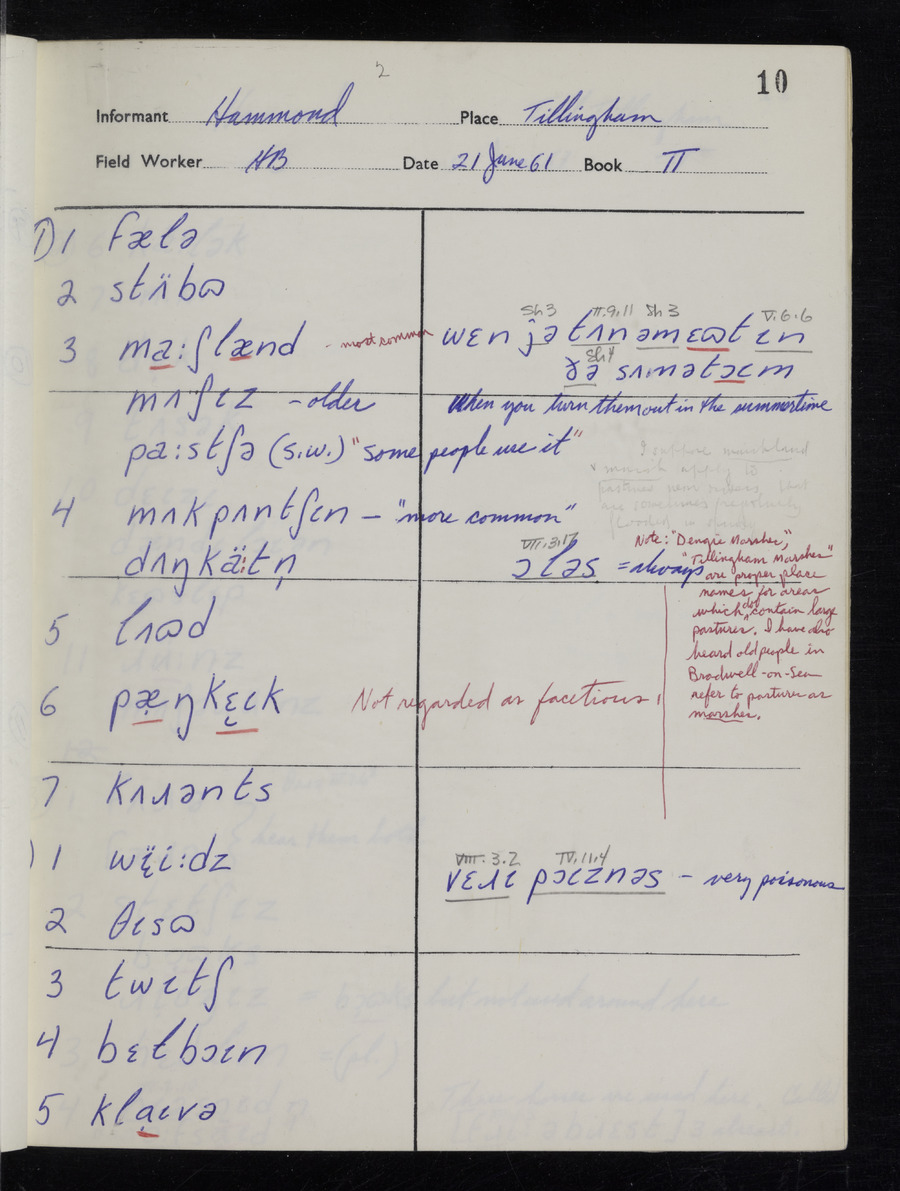 2
10
Informant Hammond Place Tillingham
Field Worker HB Date 21 June 61 Book II
I) 1 fælə
2 stʌ̈bɷ
Sh 3 II.9.11 Sh 3 V.6.6
3 ma:ʃlænd - most common wɛn jə tʌn əmɛɷt ɪn
Sh 4
ðə sʌmətɔɪm
mʌʃɪz - older When you turn them out in the summertime
pa:stʃə (s.w.) "some people use it"
I suppose marshland
& marsh apply to
pastures near
are sometimes
flooded in
4 mʌkpʌntʃɪn - "more common"
dʌŋkä:tn̩
VII.3.17
ɔləs = always
Note: "Dengie Marshes",
"Tillingham Marshes"
are proper place
names for areas
which do contain large
pastures. I have also
heard old people in
Bradwell-on-Sea
refer to pastures as
marshes.
5 lʌɷd
6 pæ̣ŋkɛ̣ɪk Not regarded as facetious.
7 kʌɹənts
VIII.3.2 IV.11.4
) 1 wï̜i:dz vɛɹɪ pɔɪznəs - very poisonous
2 θɪsɷ
3 twɪtʃ
4 bɛtbɔɪn
5 klạɪvə